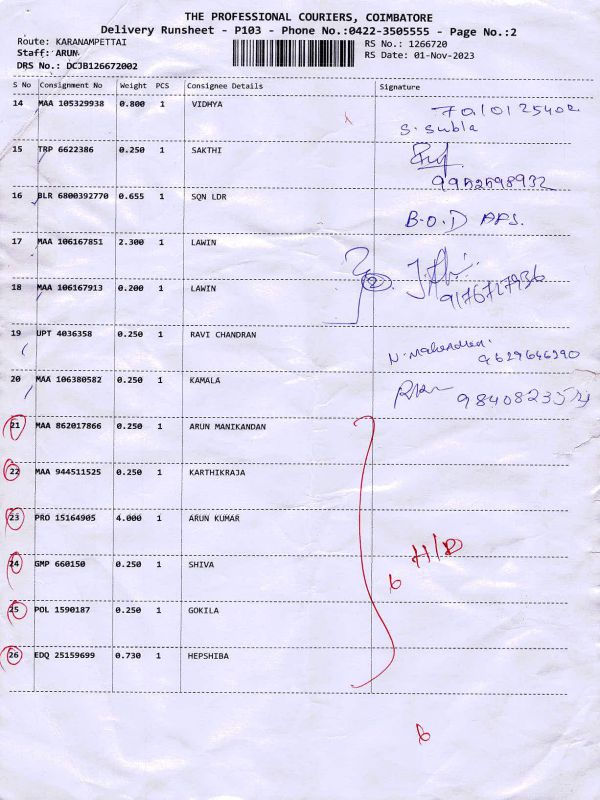 THE PROFESSIONAL COURIERS, COIMBATORE
Delivery Runsheet - P103 - Phone No.:0422-3505555 - Page No.:2
Route: KARANAMPETTAI
Staff: ARUN
DRS No.: DCJB126672002
RS No.: 1266720
RS Date: 01-Nov-2023
S No Consignment No Weight PCS Consignee Details Signature
14 MAA 105329938 0.800 1 VIDHYA
S. Subla
15 TRP 6622386 0.250 1 SAKTHI
9952598932
16 BLR 6800392770 0.655 1 SQN LDR
B.O.D APS.
17 MAA 106167851 2.300 1 LAWIN
18 MAA 106167913 0.200 1 LAWIN
2
9176727936
19 UPT 4036358 0.250 1 RAVI CHANDRAN
N. Mahendran.
9629646290
20 MAA 106380582 0.250 1 KAMALA
21 MAA 862017866 0.250 1 ARUN MANIKANDAN
22 MAA 944511525 0.250 1 KARTHIKRAJA
23 PRO 15164905 4.000 1 ARUN KUMAR
24 GMP 660150 0.250 1 SHIVA
6 H/D
25 POL 1590187 0.250 1 GOKILA
26 EDQ 25159699 0.730 1 HEPSHIBA
6